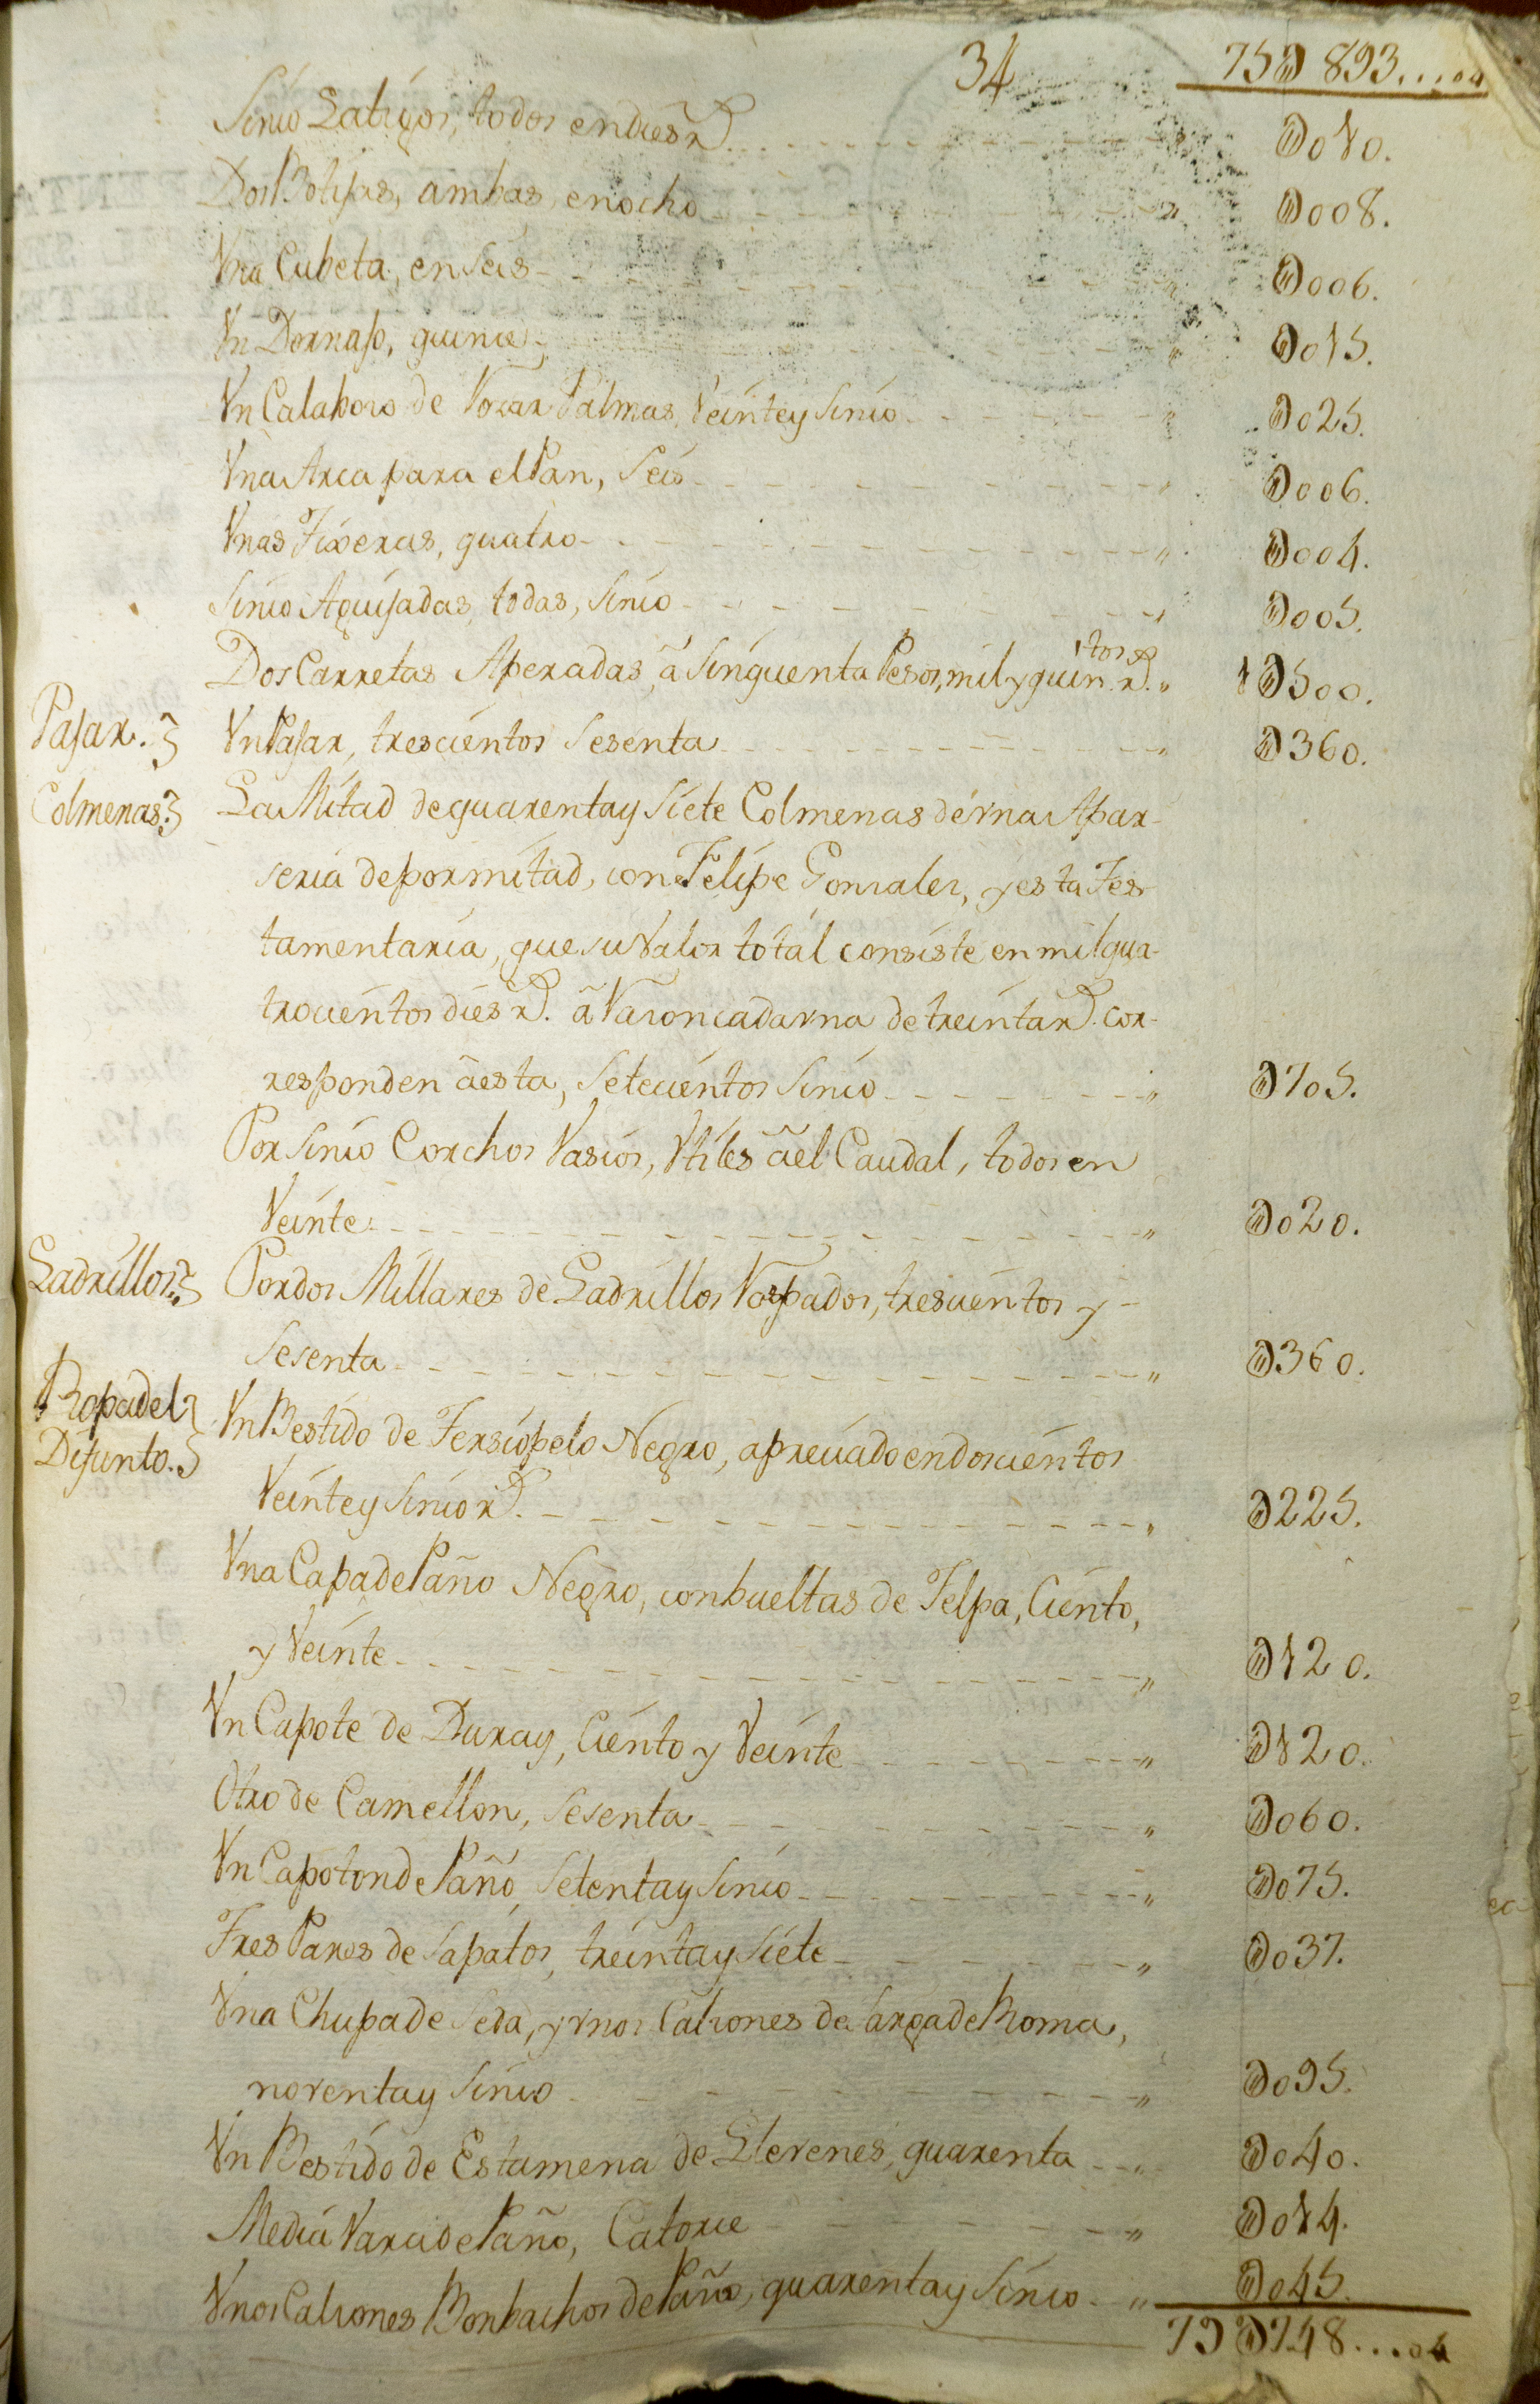 34 75D893.....04
Sinco Latigos, todos en dies r.s D010.
Dos Botijas, ambas, en ocho D008.
Vna Cubeta, en seis D006.
Vn Dornajo, quince D015.
Vn Calaboso de Rozar Palmas, Veinte y sinco D025.
Vna Arca para el Pan, Seis D006.
Vnas Tixeras, quatro D004.
Sinco Aguijadas, todas, sinco D005.
Dos Carretas Aperadas, â Sinquenta Pesos, mil y quin.tos r.s 1D500.
Pajar. Vn Pajar, trescientos sesenta D360.
Colmenas. La Mitad de quarenta y siete Colmenas de vna Apar-
seria de por mitad, con Felipe Gonzales, y esta Tes-
tamentaria, que su Valor total consiste en mil qua-
trocientos dies r.s â Razon cada vna de treinta r.s cor-
responden â esta, setecientos sinco D705.
Por sinco Corchos Vasios, Vtiles â el Caudal, todos en
Veinte D020.
Ladrillos. Por dos Millares de Ladrillos Raspados, trescientos y
sesenta D360.
Ropa del
Difunto. Vn Bestido de Tersiopelo Negro, apreciado en doscientos
Veinte y sinco r.s D225.
Vna Capa de Paño Negro, con bueltas de Felpa, Ciento,
y Veinte D120.
Vn Capote de Duray, Ciento y Veinte D120.
Otro de Camellon, sesenta D060.
Vn Capoton de Paño, setenta y sinco D075.
Tres Pares de Sapatos, treinta y siete D037.
Vna Chupa de Seda, y vnos Calsones de Sarga de Roma,
noventa y sinco D095.
Vn Bestido de Estamena de Llerenes, quarenta D040.
Media Vara de Paño, Catorce D014.
Vnos Calsones Bonbachos de Paño, quarenta y sinco D045.
79D748....04